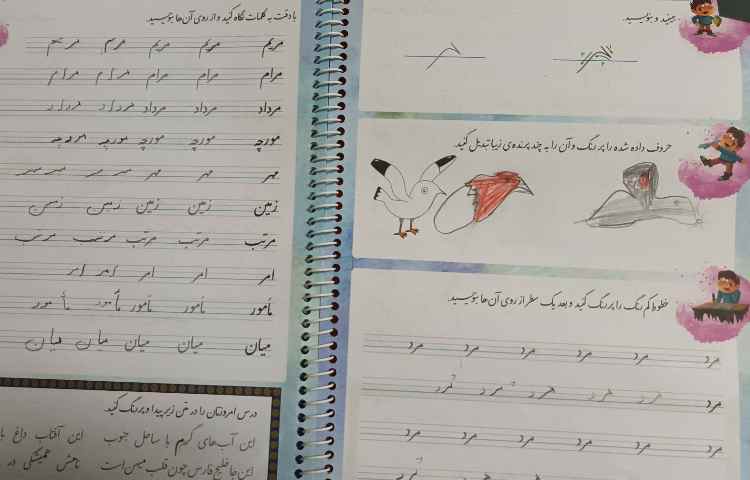 ببینید و بنویسید.
حروف داده شده را پر رنگ و آن را به چند پرنده‌ی زیبا تبدیل کنید.
خطوط کم رنگ را پررنگ کنید و بعد یک سطر از روی آن‌ها بنویسید.
مرد مرد مرد مرد مرد مرد
مرد مرد مرد مرد
مرد مرد مرد مرد مرد مرد
با دقت به کلمات نگاه کنید و از روی آن‌ها بنویسید.
مریم مریم مریم مریم مریم
مرام مرام مرام مرام مرام
مرداد مرداد مرداد مرداد مرداد
مورچه مورچه مورچه مورچه مورچه
مهر مهر مهر مهر مهر
زمین زمین زمین زمین زمین
مرتب مرتب مرتب مرتب مرتب
امر امر امر امر امر
مأمور مأمور مأمور مأمور مأمور
میان میان میان میان میان
درس امروزتان را در متن زیر پیدا و پررنگ کنید.
این آب‌های گرم با ساحل جنوب این آفتاب داغ
این‌جا خلیج فارس چون قلب میهن است تابش همیشگی